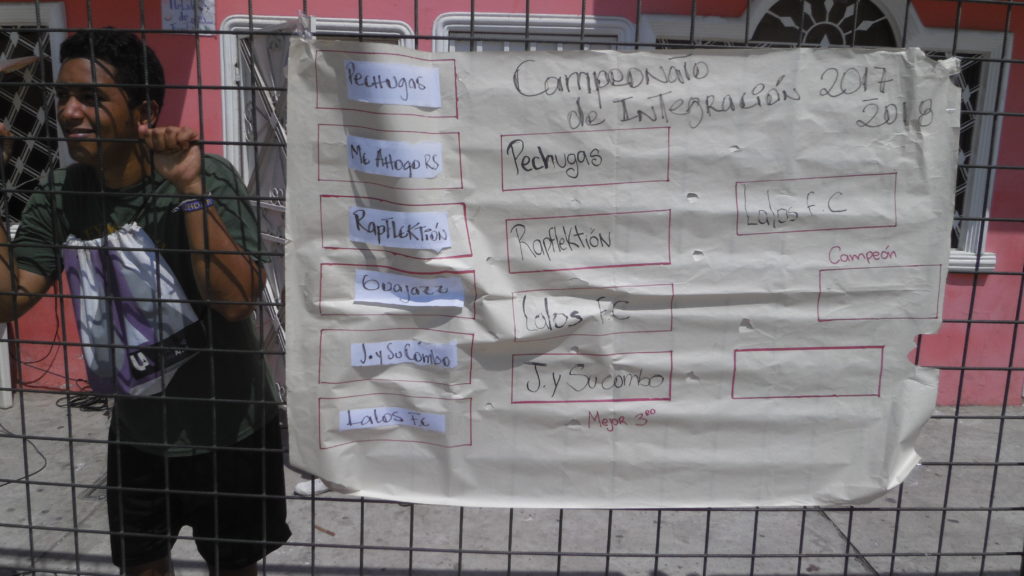 Campeonato
de Integración 2017
2018
Pechugas
Me Ahogo RS
Rapflektión
Guajazz
J. y Su Combo
Lalos F.C
Pechugas
Rapflektión
Lalos F.C
J. y Su combo
Mejor 3ro
Lalos F.C
Campeón